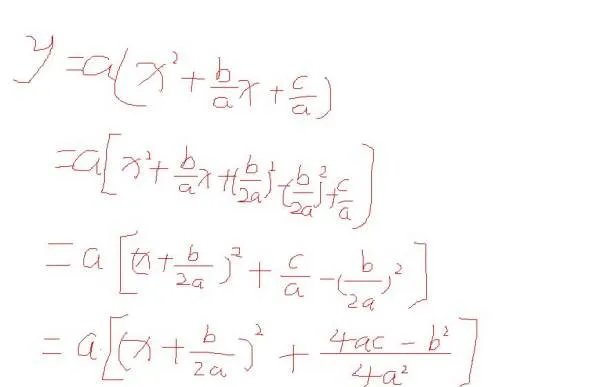 y=a(x²+b/a x+c/a)
=a[x²+b/a x+(b/2a)²-(b/2a)²+c/a]
=a[(x+b/2a)²+c/a-(b/2a)²]
=a[(x+b/2a)²+4ac-b²/4a²]